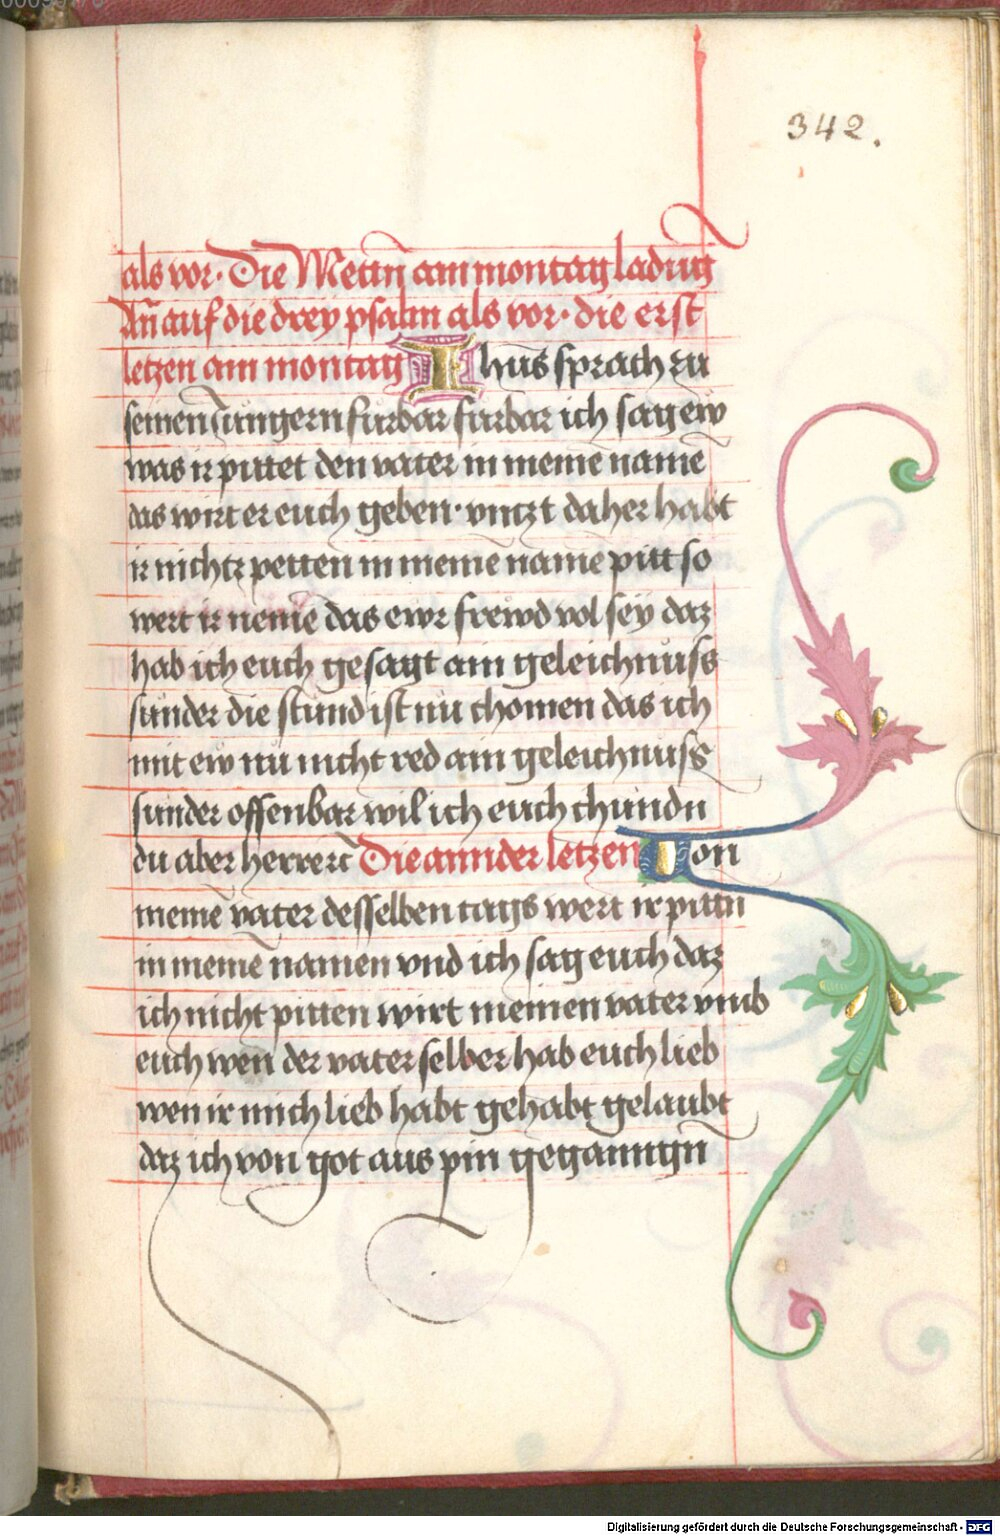 342.
als vor. Die Metin̄ am montag ladūg
An̄ auf die drey psalm als vor. die erst
letzen am montag Ihus sprach zu
seinen Jungern furbar furbar ich sag ew
was ir pittet den vater in meinē namē
das wirt er euch geben. vntzt daher habt
ir nichtz petten in meinē namē pitt so
wert ir nemē das ewr frewd vol sey daz
hab ich euch gesagt ain geleichnuss
sunder die stund ist nu chomen das ich
mit ew nu nicht red ain geleichnuss
sunder offenbar wil ich euch chundn
du aber herre rc̄ Die annder letzen Von
meinē vater desselben tags wert ir pittn
in meinē namen vnd ich sag euch daz
ich nicht pitten wirt meinen vater vmb
euch wen der vater selber hab euch lieb
wen ir mich lieb habt gehabt gelaubt
daz ich von got aus pin geganngn
Digitalisierung gefördert durch die Deutsche Forschungsgemeinschaft - DFG